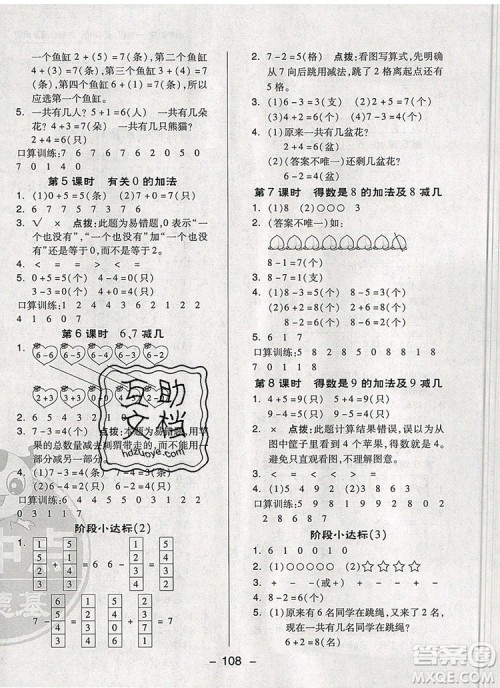 一个鱼缸 2+(5)=7(条), 第二个鱼缸
4+(3)=7(条), 第三个鱼缸 3+(4)=7
(条), 第四个鱼缸 6+(1)=7(条), 所以
应选第一个鱼缸。
5. 一共有几人? 5+1=6(人) 一共有几朵
花? 4+3=7(朵) 一共有几只熊猫?
2+4=6(只)
口算训练:6 7 6 7 7 6 2 0 5 0
7 0 1 4 0
第5课时 有关0的加法
1. (1)0+5=5(条) (2)0+7=7(只)
2. 6 7 7 3 7 5
3. √ × 点拨:此题为易错题,0表示“一个
也没有”,一个数与“一个也没有”合在一起
还是等于0,而不是等于2。
4. < = = > = <
5. 0+4=4(只) 4+0=4(只)
口算训练:1 2 4 4 3 6 3 1 2 2
1 7 4 6 4
第6课时 6、7减几
1.
6-4 6-5 6-2
2+3 0+3
2. 7 7 2 5 4 3
3. × √ 点拨:
的总数量减去刺猬带走的
一部分=另一部分。
4. (1)7-2=5(只)
(2)7-4=3(只)
口算训练:6 5 2
5 6 3 1
阶段小达标(2)
7-
- 108 -
2. 7-2=5(格) 点拨:看图写算式,明确
从7向后跳用减法,跳了2格离出口还
有5格。
3. (1)6-3=3(个) (2)6-1=5(个)
4. (1)原来一共有几盆花? 2+4=6(盆)
(2)(答案不唯一)还剩几盆花?
6-4=2(盆)
第7课时 得数是8的加法及8减几
1. (1)8 (2)○○○ 3
2. (答案不唯一)如:
8-1=7(个)
3. (1)8-3=5(个) 8-5=3(个)
(2)2+6=8(个) 6+2=8(个)
4. 8-4=4(只)
5. 1 7
口算训练:8 8 3 1 8 8 4 5 8 2
6 6 6 4 7
第8课时 得数是9的加法及9减几
1. 5 9
2. √ × 点拨:此题计算结果错误,误认为
由图中筐子里看到4个苹果,得数就是4。
避免只看图直接写得数。
3. 9-4=5(只) 9-5=4(只)
4. 9-2=7(棵)
口算训练:5 9 4 9 9 1 6 9 8 9
7 3 8 7 8
阶段小达标(3)
1. 6 9 8 8 0 1
2. (1)☆☆☆☆☆☆ (2)○○○○
3. + - + - (或+) - -
4. > < < > > =
5. (1)原来有6名同学在跳绳,又来了2名,
现在一共有几名同学在跳绳?
6+2=8(名)
互助文档
hdzuoye.com
MXQE.COM